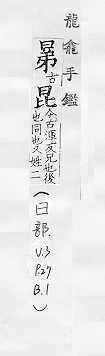 龍龕手鑑
晜古昆今古渾反兄也後也同也又姓二(日部. V.3 P.27 B.1)